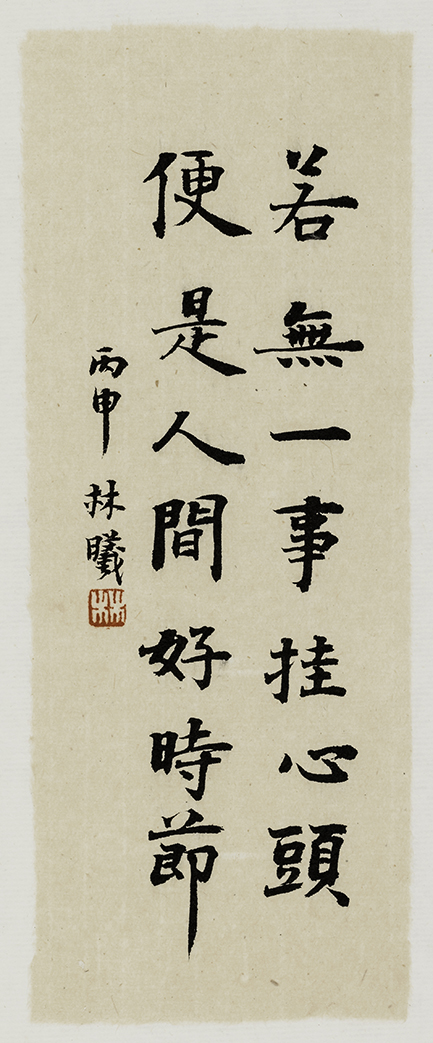 若無一事挂心頭
便是人間好時節
丙申 林曦
林